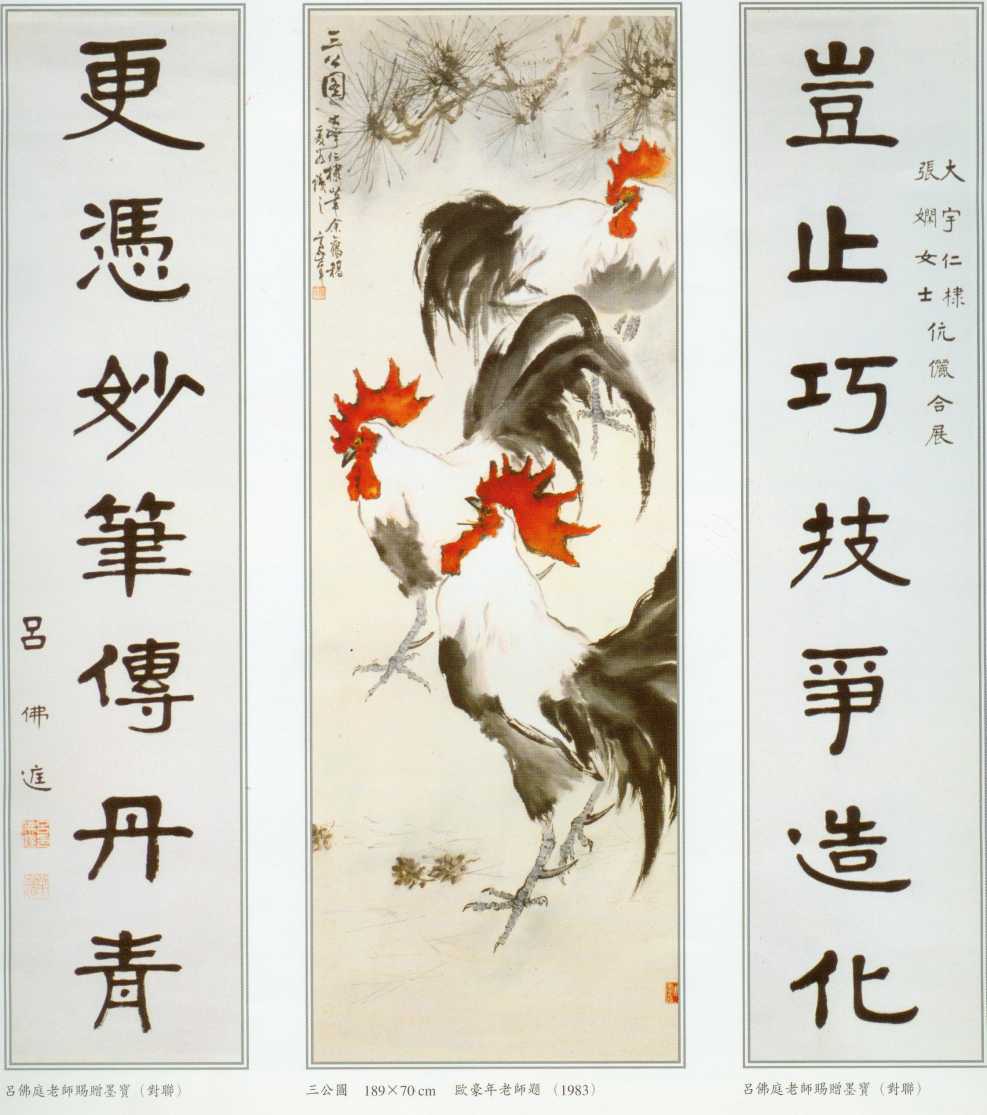 豈止巧技爭造化
大宇仁棣
張嫻女士
伉儷合展
三公圖
大宇仁棣筆
更憑妙筆傳丹青
呂佛庭
呂佛庭老師賜贈墨寶（對聯）
三公圖 189×70 cm 歐豪年老師題（1983）
呂佛庭老師賜贈墨寶（對聯）